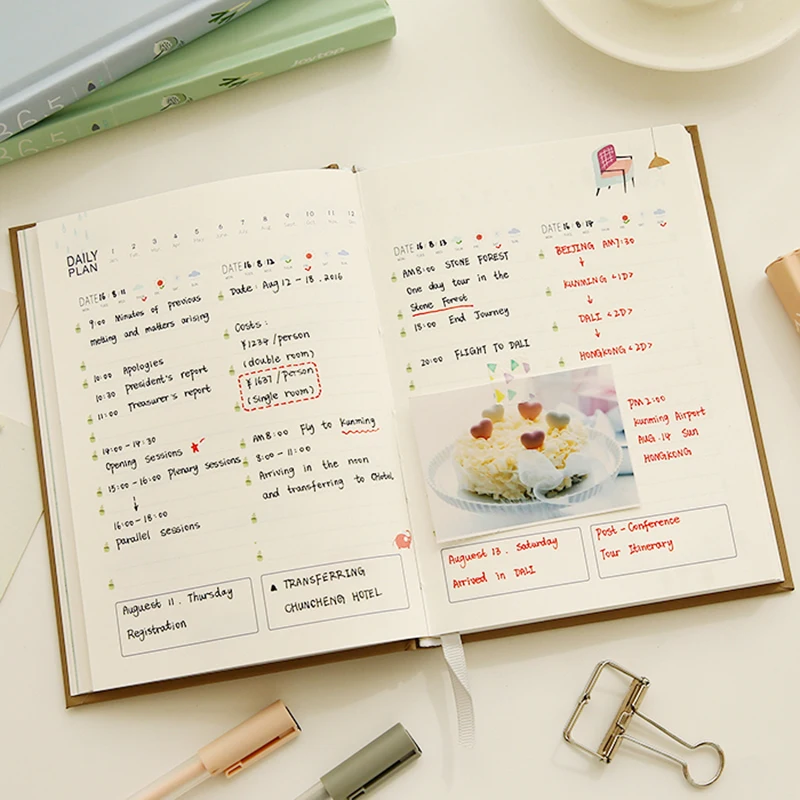 365
365
Joytop
DAILY
PLAN
1 2 3 4 5 6 7 8 9 10 11 12
DATE 16 . 8 . 11
9:00 Minutes of previous
metting and matters arising
10:00 Apologies
10:30 President's report
11:00 Treasurer's report
14:00 - 14:30
Opening sessions
15:00 - 16:00 Plenary sessions
16:00 - 18:00
parallel sessions
Auguest 11 . Thursday
Registration
DATE 16 . 8 . 12
Date: Aug 12 - 18 . 2016
Costs:
¥1234 /person
(double room)
¥1637 /Person
(single room)
AM 8:00 Fly to Kunming
8:00 - 11:00
Arriving in the noon
and transferring to CHotel
▲ TRANSFERRING
CHUNCHENG HOTEL
DATE 16 . 8 . 13
AM8:00 STONE FOREST
One day tour in the
Stone Forest
18:00 End Journey
20:00 FLIGHT TO DALI
Auguest 13 . Saturday
Arrived in DALI
DATE 16 . 8 . 14
BEIJING AM7:30
↓
KUNMING <1D>
↓
DALI <2D>
↓
HONGKONG <2D>
PM 2:00
kunming Airport
AUG . 14 Sun
HONGKONG
Post - Conference
Tour Itinerary